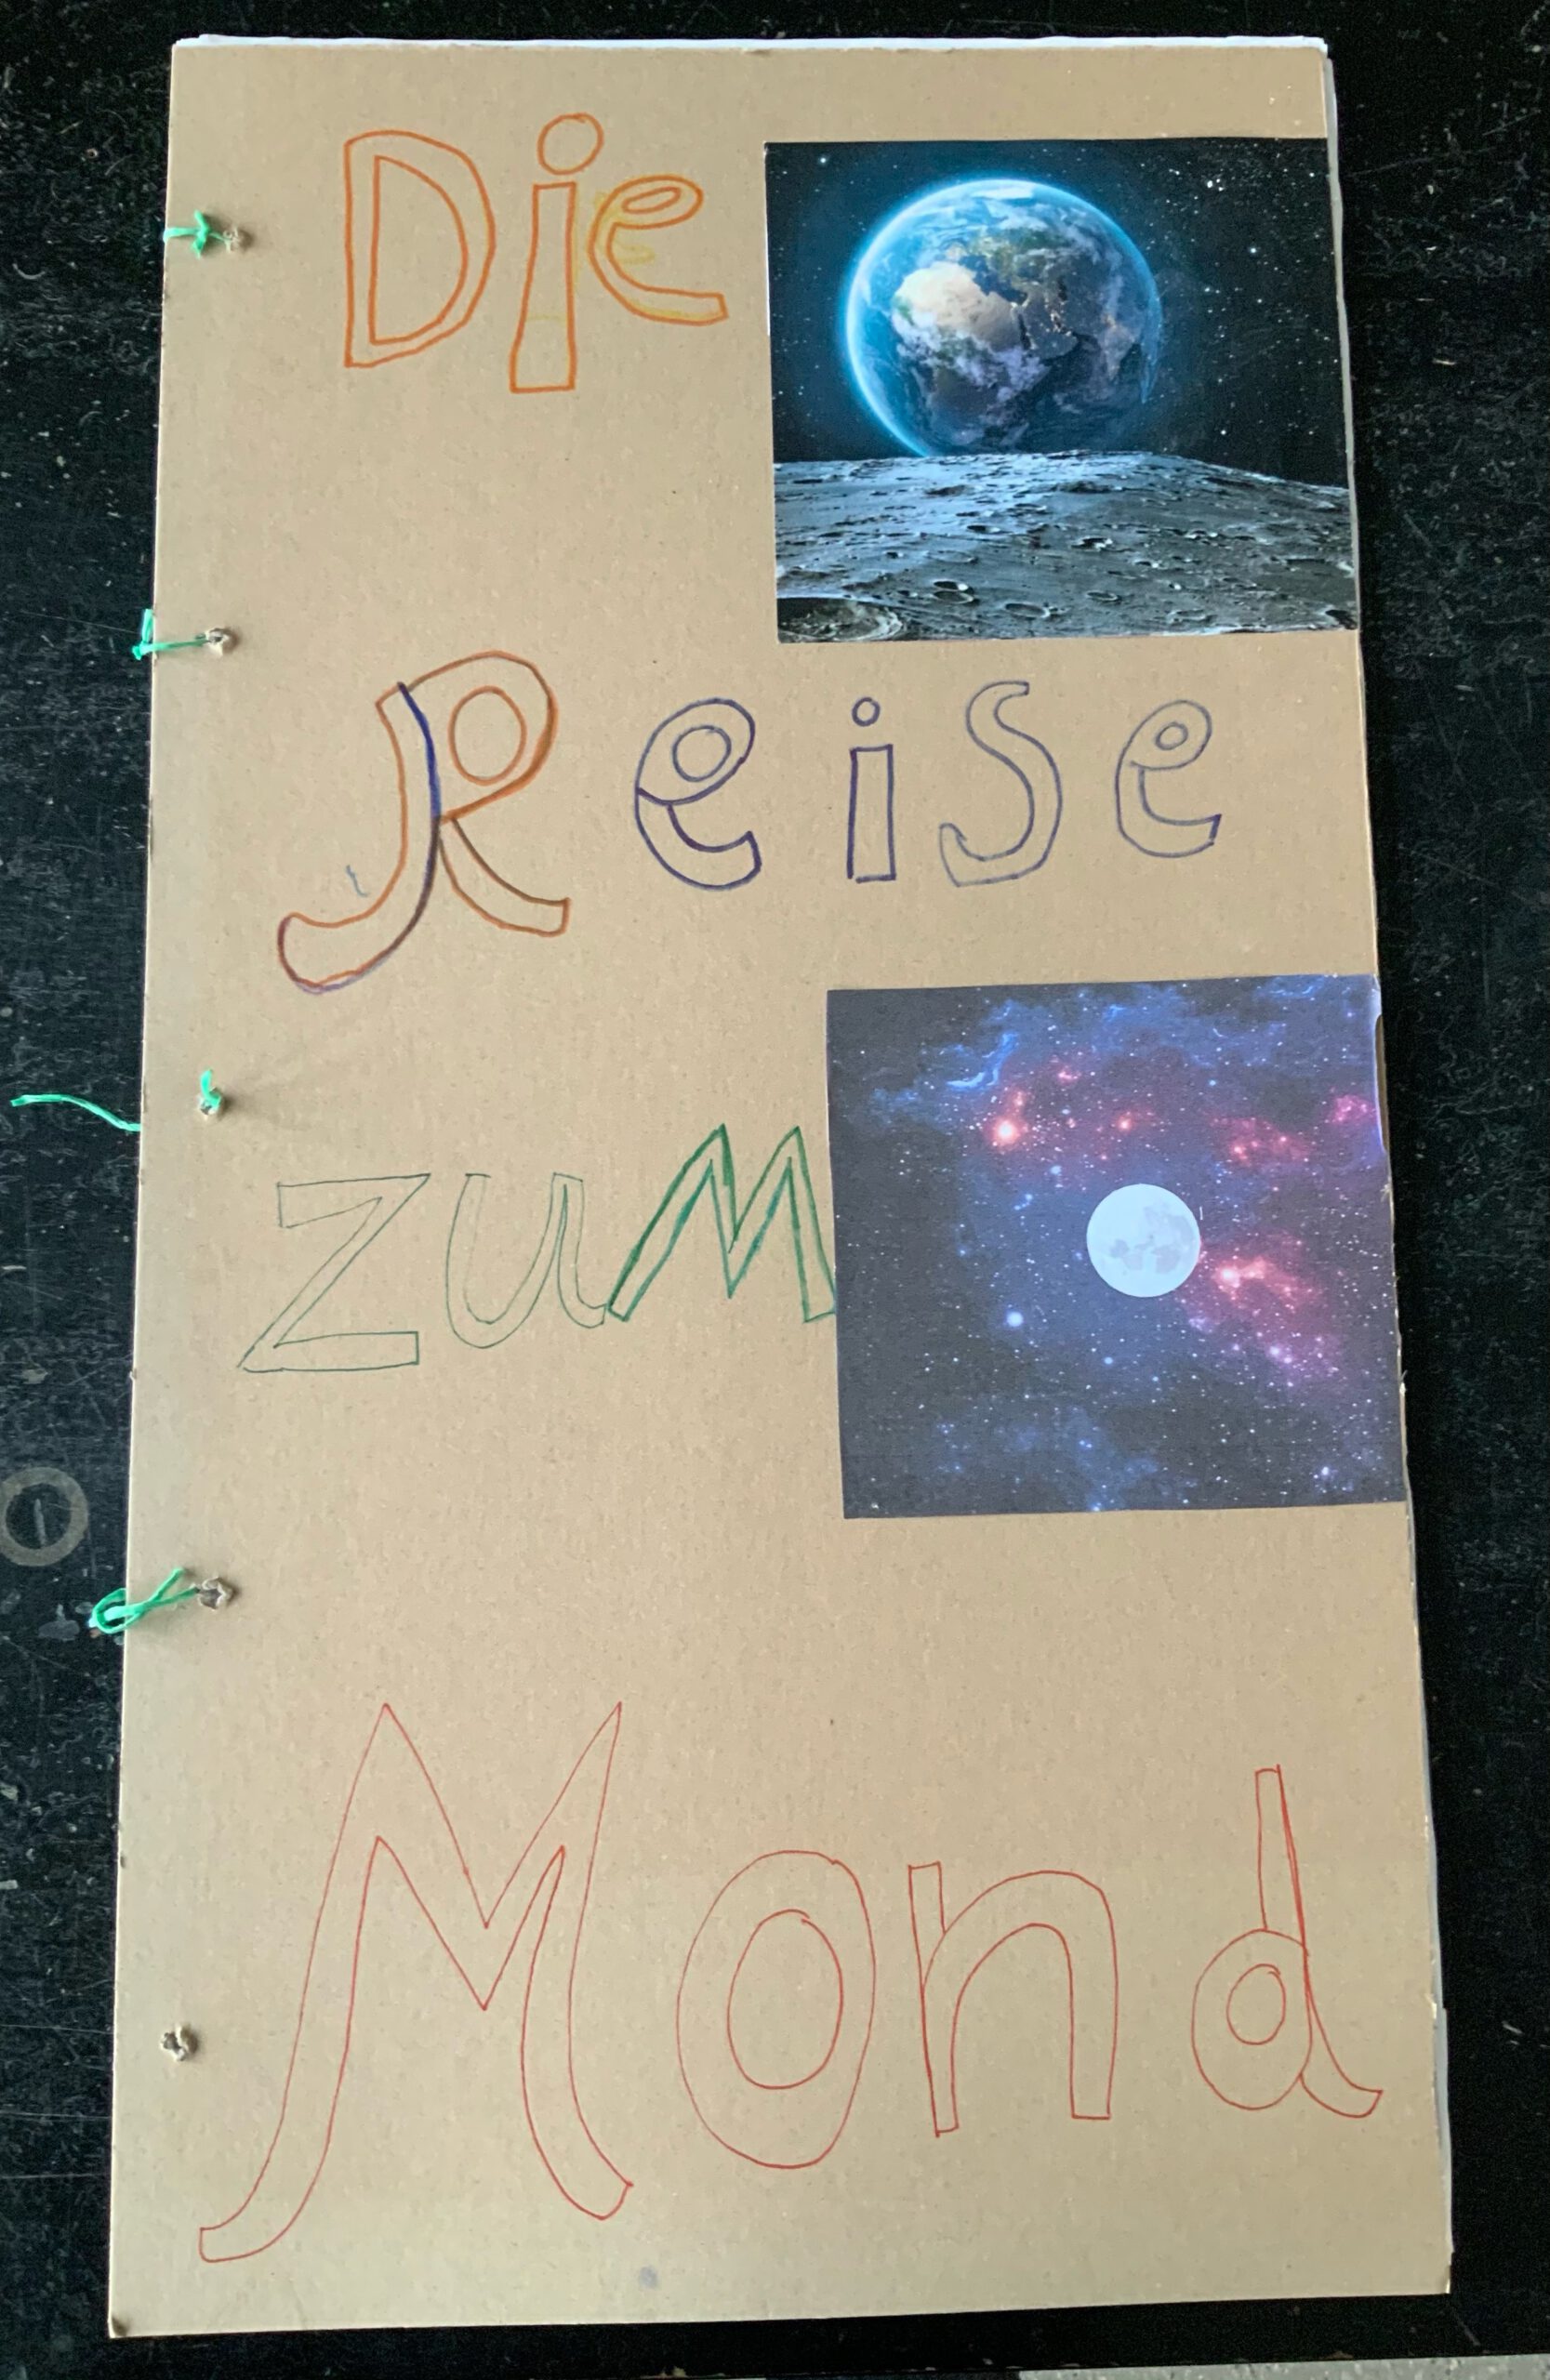 Die
Reise
zum
Mond